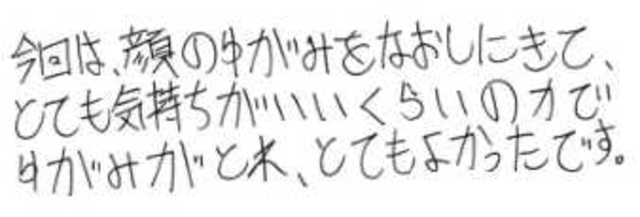 今回は、顔のゆがみをなおしにきて、
とても気持ちがいいくらいの力で
ゆがみがとれ、とてもよかったです。